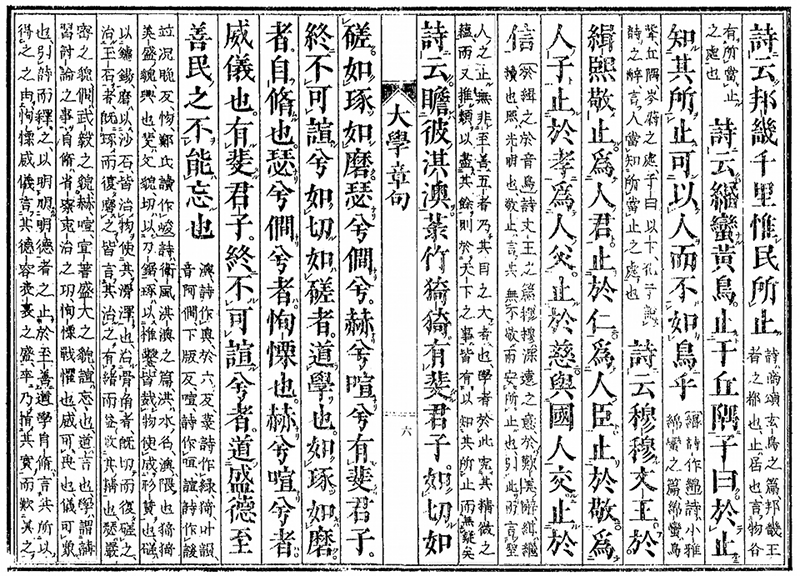 詩云邦畿千里惟民所止
詩商頌玄鳥之篇邦畿王
者之都也止居也言物各
有所當止
之處也
詩云緡蠻黃鳥止于丘隅子曰於止
知其所止可以人而不如鳥乎
緡詩作綿詩小雅
綿蠻之篇緡蠻鳥
聲丘隅岑蔚之處子曰以下孔子說
詩之辭言人當知所當止之處也
詩云穆穆文王於
緝熙敬止爲人君止於仁爲人臣止於敬爲
人子止於孝爲人父止於慈與國人交止於
信
於緝之於音烏詩文王之篇穆穆深遠之意於歎美辭緝繼
續也熙光明也敬止言其無不敬而安所止也引此而言聖
人之止無非至善五者乃其目之大者也學者於此究其精微之
蘊而又推類以盡其餘則於天下之事皆有以知其所止而無疑矣
詩云瞻彼淇澳菉竹猗猗有斐君子如切如
大學章句
六
磋如琢如磨瑟兮僩兮赫兮喧兮有斐君子
終不可諠兮如切如磋者道學也如琢如磨
者自脩也瑟兮僩兮者恂慄也赫兮喧兮者
威儀也有斐君子終不可諠兮者道盛德至
善民之不能忘也
澳詩作奧於六反菉詩作綠猗叶韻
音阿僩下版反喧詩作咺諠詩作諼
並況晚反恂鄭氏讀作峻詩衛風淇澳之篇淇水名澳隈也猗猗
美盛貌興也斐文貌切以刀鋸琢以椎鑿皆裁物使成形質也磋
以鑢鐋磨以沙石皆治物使其滑澤也治骨角者既切而復磋之
治玉石者既琢而復磨之皆言其治之有緒而益致其精也瑟嚴
密之貌僩武毅之貌赫喧宣著盛大之貌諠忘也道言也學謂講
習討論之事自脩者省察克治之功恂慄戰懼也威可畏也儀可象
也引詩而釋之以明明明德者之止於至善道學自脩言其所以
得之之由恂慄威儀言其德容表裏之盛卒乃指其實而歎美之